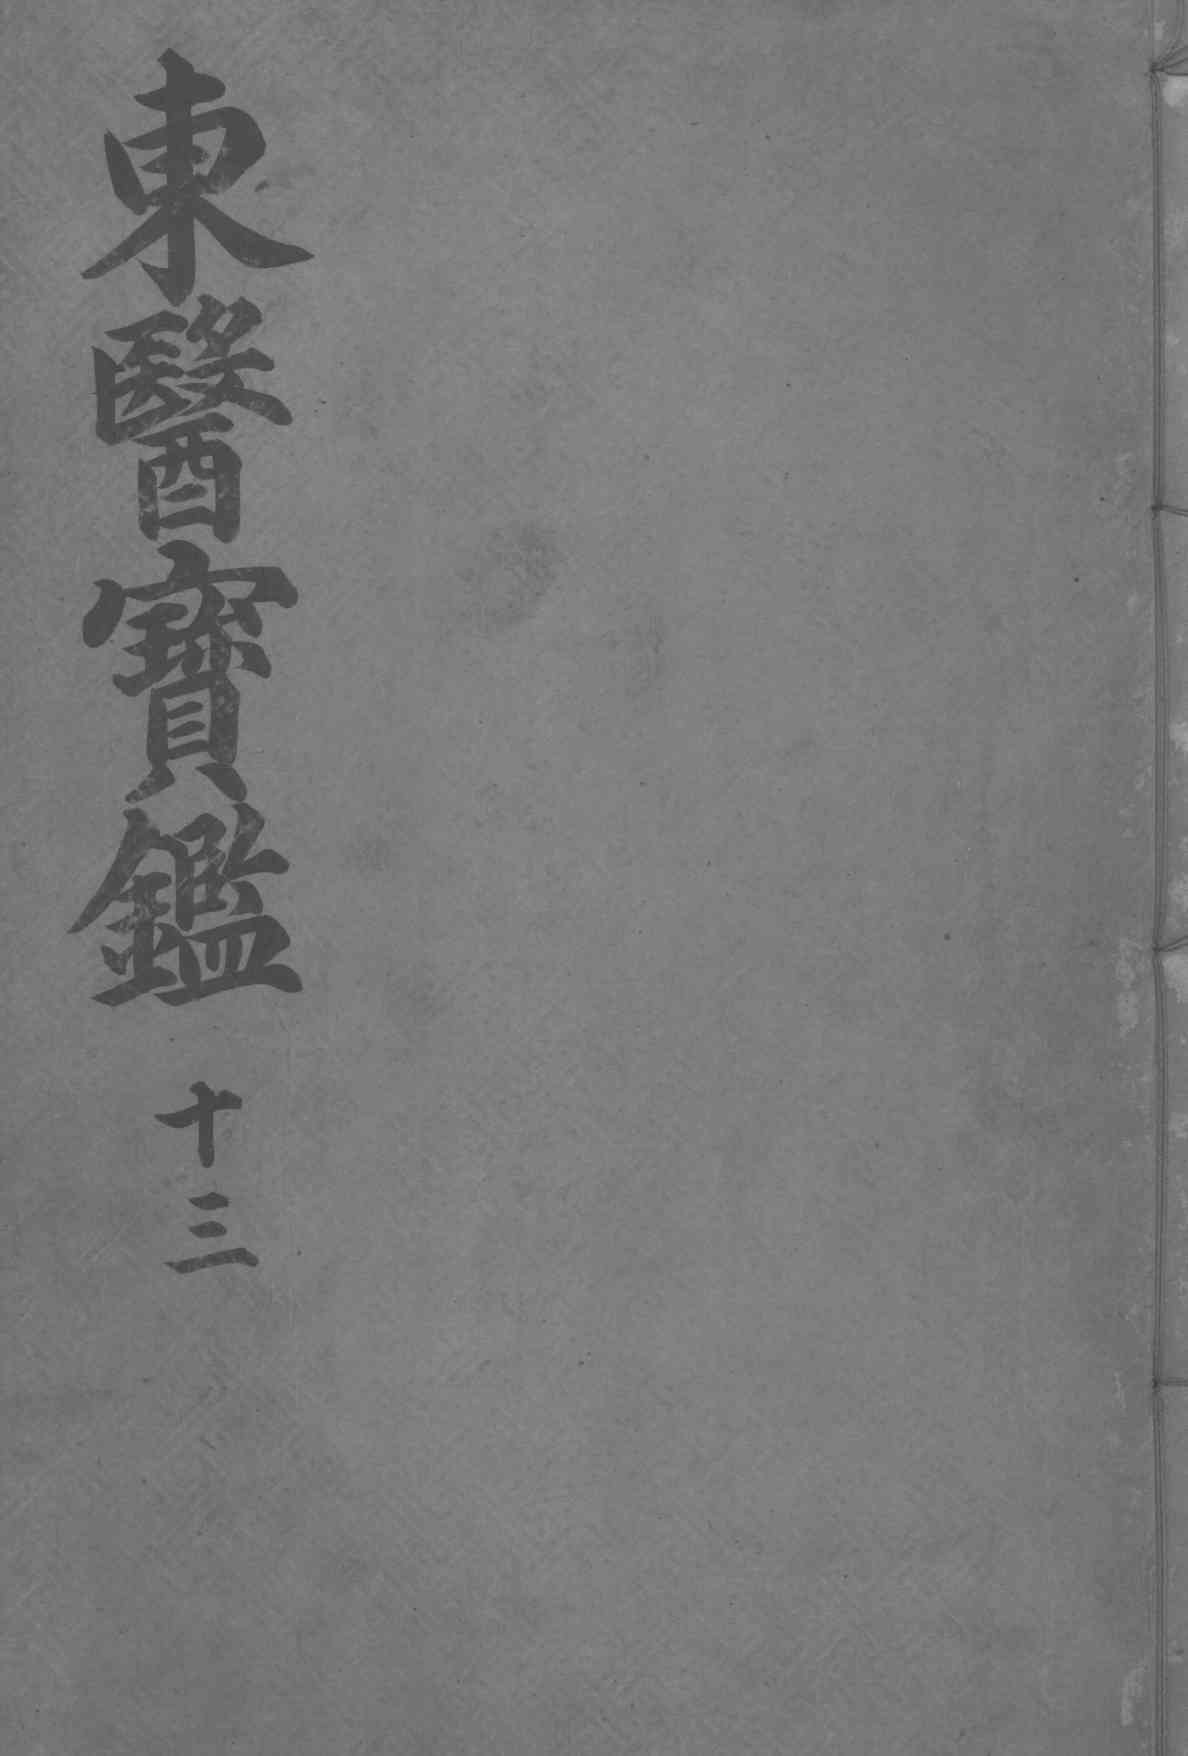 東醫寶鑑 十三